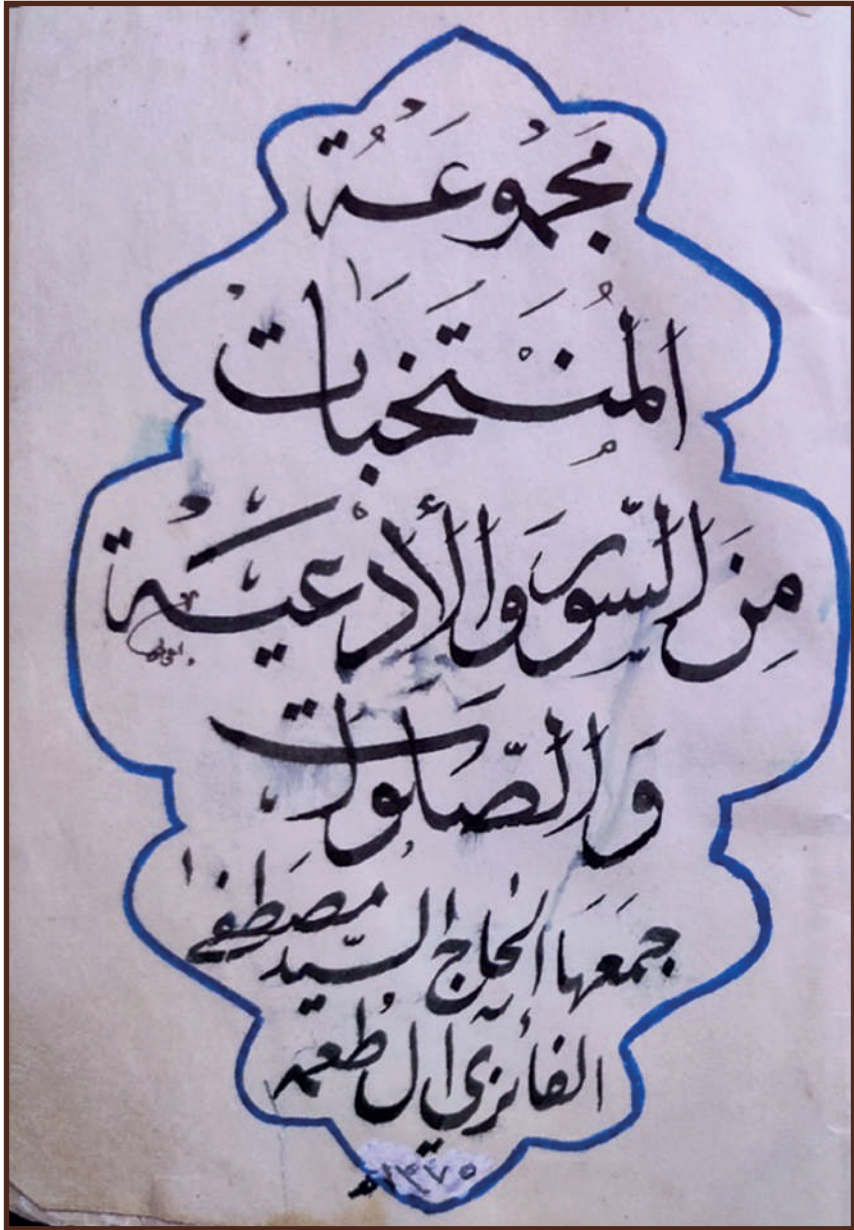 مَجْمُوعَةُ
المُنْتَخَبَاتْ
مِنَ السّوَرِ وَالأَدْعِيَةْ
وَالصَّلَوَاتْ
جَمَعَهَا الحَاج السَّيِّد مُصْطَفىٰ
الفائزي آل طعمه
١٣٧٥هـ